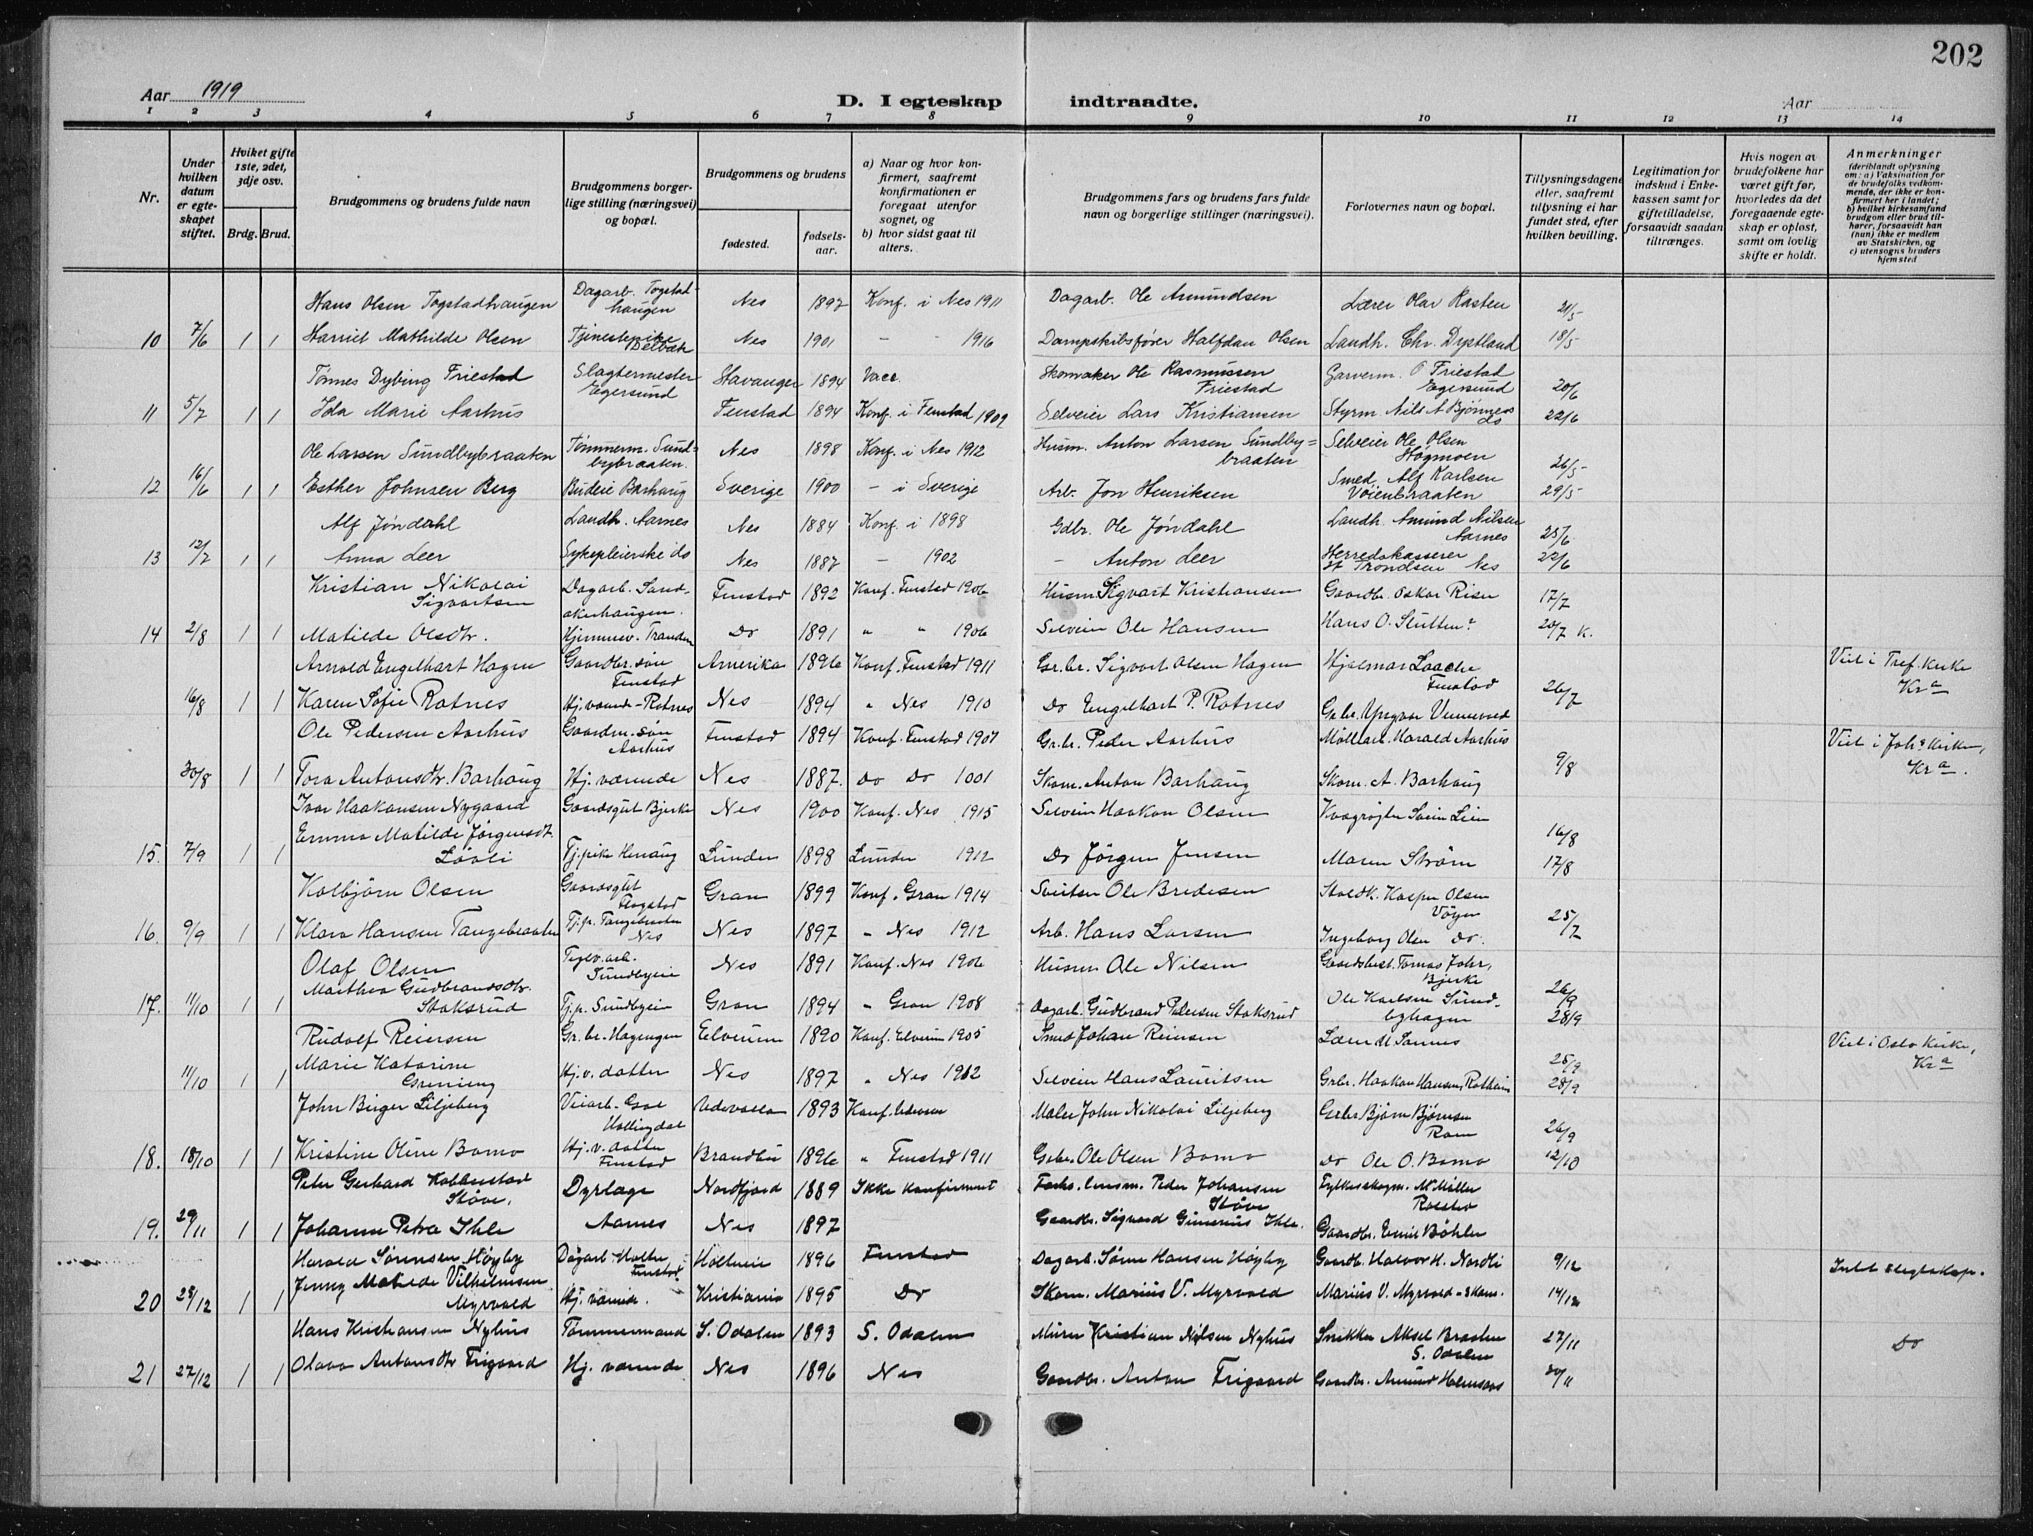 202
Aar 1919
D. I egteskap indtraadte.
Aar
1 2 3 4 5 6 7 8 9 10 11 12 13 14
Nr.
Under hvilken datum er egteskapet stiftet.
Hviket gifte 1ste, 2det, 3dje osv.
Brdg. Brud.
Brudgommens og brudens fulde navn
Brudgommens borgerlige stilling (næringsvei) og bopæl.
Brudgommens og brudens
fødested.
fødselsaar.
a) Naar og hvor konfirmert, saafremt konfirmationen er foregaat utenfor sognet, og
b) hvor sidst gaat til alters.
Brudgommens fars og brudens fars fulde navn og borgerlige stillinger (næringsvei).
Forlovernes navn og bopæl.
Tillysningsdagene eller, saafremt tillysning ei har fundet sted, efter hvilken bevilling.
Legitimation for indskud i Enkekassen samt for giftetilladelse, forsaavidt saadan tiltrænges.
Hvis nogen av brudefolkene har været gift før, hvorledes da det foregaaende egteskap er opløst, samt om lovlig skifte er holdt.
Anmerkninger
(deriblandt oplysning om: a) Vaksination for de brudefolks vedkommende, der ikke er konfirmert her i landet;
b) hvilket kirkesamfund brudgom eller brud tilhører, forsaavidt han (hun) ikke er medlem av Statskirken, og
c) utensogns bruders hjemsted
Hans Olsen Togstadhaugen Dagarb. Togstadhaugen Nes 1897 Konf. i Nes 1911 Dagarb. Ole Amundsen Lærer Olav Rasten 21/5
10 7/6 1 1 Harriet Mathilde Olsen Tjenestepike Nes 1901 – – 1916 Dampskibsfører Halfdan Olsen Landh. Chr. Dystland 18/5
Tønnes Dybing Friestad Slagtermester Egersund Stavanger 1894 Vacc. Skomaker Ole Rasmussen Friestad Garverm. O Friestad Egersund 20/6
11 5/7 1 1 Ida Marie Aarhus Fenstad 1894 Konf. i Fenstad 1909 Selveier Lars Kristiansen Styrm Nils A Bjønness do 22/6
Ole Larsen Sundbybraaten Tømmerm. Sundbybraaten. Nes 1898 Konf. i Nes 1912 Husm. Anton Larsen Sundbybraaten Selveier Ole Olsen Høgmoen 26/5
12 16/6 1 1 Esther Johnsen Berg Budeie Barhaug Sverige 1900 – i Sverige Arb. Jon Henriksen Smed Alf Karlsen Vøienbraaten 29/5
Alf Jøndahl Landh. Aarnes Nes 1884 Konf. i 1898 Gdbr. Ole Jøndahl Landh. Amund Nilsen Aarnes 25/6
13 12/7 1 1 Anna Leer Sykepleierske do Nes 1887 – 1902 – Anton Leer Herredskasserer H Trondsen Nes 22/6
Kristian Nikolai Sigvartsen Dagarb. Sandakerhaugen. Fenstad 1892 Konf. Fenstad 1906 Husm. Sigvart Kristiansen Gaardbr. Oskar Risn 17/7
14 2/8 1 1 Matilde Olsdtr. Hjemmev. Tranden Do 1891 " " 1906 Selveier Ole Hansen Hans O. Slutten 20/7 K.
Arnold Engelhart Hagen Gaardbr. søn Fenstad Amerika 1896 Konf. Fenstad 1911 Gr.br. Sigvart Olsen Hagen Hjalmar Laache Fenstad Viet i Tref. Kirke Kra
16/8 1 1 Karen Sofie Rotnes Hj. værende - Rotnes Nes 1894 " Nes 1910 Do Engelhart P. Rotnes 26/7
Ole Pedersen Aarhus Gaardm. søn Aarhus Fenstad 1894 Konf. Fenstad 1907 Gr.br. Peder Aarhus Møllearb. Harald Aarhus Viet i Johs Kirke, Kra.
30/8 1 1 Tora Antonsdtr. Barhaug Hj. værende Nes 1887. Do Do 1901 Skom. Anton Barhaug Skom. A. Barhaug 9/8
Ivar Haakonsen Nygaard Gaardsgut Bjerke Nes 1900 Konf. Nes 1915 Selveier Haakon Olsen 16/8
15. 7/9 1 1 Emma Matilde Jørgensdt. Løvli Tj. pike Henaug Lunder 1898 Lunder 1912 Do Jørgen Jensen Maren Strøm 17/8
Kolbjørn Olsen Gaardsgut Gran 1899 Konf. Gran 1914 Sveitser Ole Bredesen Staldk. Kasper Olsen
16. 9/9 1 1 Klara Hansen Tangebraaten Tj.p. Tangebraaten Nes Nes 1897 " Nes 1912 Arb. Hans Larsen Ingeborg Olsen Do. 25/7
Olaf Olsen Teglv.arb. Sundbyeie Nes 1891 Konf. Nes 1906 Husm Ole Nilsen Gaardsbest. Tomas Johr, Bjerke 26/9
17. 11/10 1 1 Marthea Gudbrandsdtr. Stoksrud Tj.p. Sundbyeie Gran 1894 " Gran 1908 Dagarb. Gudbrand Pedersen Stoksrud Ole Karlsen Sundbyhagen 28/9
Rudolf Reiersen Gr.br. Hagengen Elverum 1890 Konf. Elverum 1905 Smed Johan Reiersen Lærer M Sannes 25/9 Viet i Oslo Kirke, Kra
11/10 1 1 Marie Katarine Grenieng Hj.v. datter Nes 1897 " Nes 1912 Selveier Hans Lauritsen Gr.br. Haakon Hansen Rotheim 28/9
John Birger Liljeberg Veiarb. Gol Hallingdal Udevalla 1893 Maler John Nikolai Liljeberg Gr.br Bjørn Bjørnsen Ram 26/9
18. 18/10 1 1 Kristine Oline Bomo Hj.v. datter Fenstad Brandbu 1896 " Fenstad 1911 Gr.br. Ole Olsen Bomo Do Ole O. Bomo 12/10
Peter Gerhard Kobbenstad Støve. Dyrlæge Nordfjord 1889 Ikke konfirmert Forhv. lensm. Peder Johansen Støve Fylkesskogm. M Møller
19. 29/11 1 1 Johanne Petra Ihle Aarnes Nes 1897 Gaardbr. Sigvard Gunerius Ihle. Gaardbr. Emil Bøhler
Harald Sørensen Høgby Dagarb. Fenstad Holleeie 1896 Fenstad Dagarb. Søren Hansen Høgby Gaardb. Halvor H. Nordli 9/12 Intet slegtskap.
20 28/12 1 1 Jenny Matilde Vilhelmsen Myrvold Hj. værende. Kristiania 1895 Do Skom. Marius V. Myrvold Marius V. Myrvold - Skom. 14/12
Hans Kristiansen Nyhus Tømmermand S. Odalen 1893 S. Odalen Murer Kristian Nilsen Nyhus Snikker Aksel Braaten S. Odalen 27/11 Do
21 27/12 1 1 Olava Antonsdtr Frigaard Hj. værende Nes 1896 Nes Gaardbr. Anton Frigaard Gaardbr. Amund Holmsaas 30/11